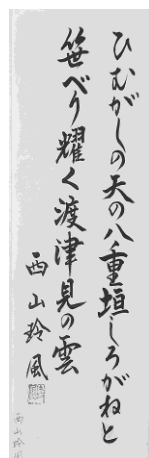 ひむがしの天の八重垣しろがねと
笹べり耀く渡津見の雲
西山玲風
西山玲風